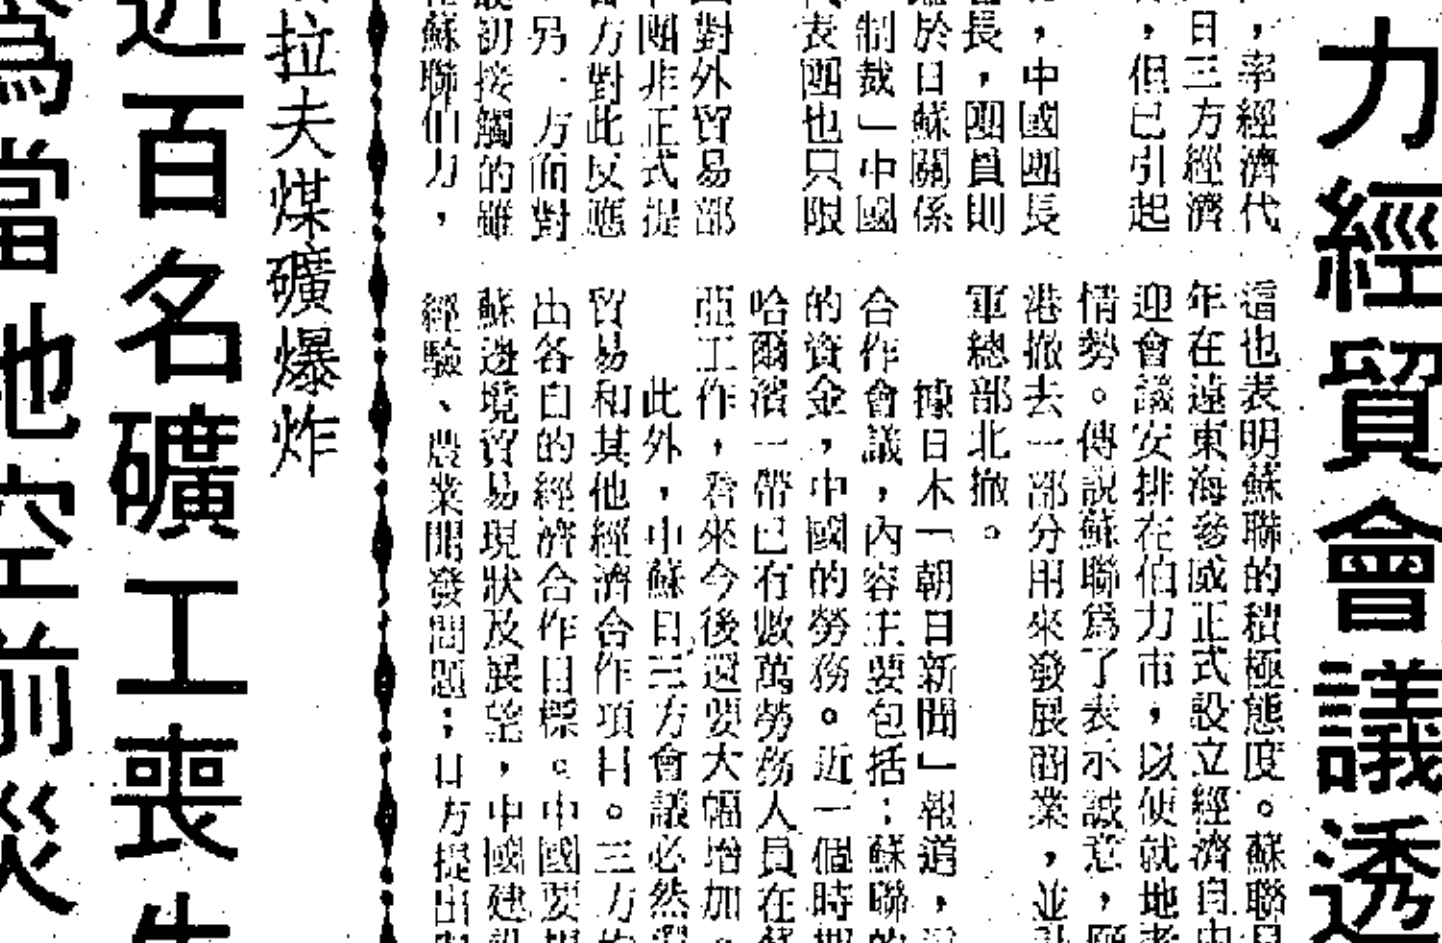 力經貿會議透
，率經濟代
日三方經濟
，但已引起
，中國團長
長，團員則
於日蘇關係
制裁」中國
表團也只限
對外貿易部
團非正式提
方對此反應
另一方面對
初接觸的雖
蘇聯伯力，
這也表明蘇聯的積極態度。蘇聯
年在遠東海參威正式設立經濟自由
迎會議安排在伯力市，以便就地考
情勢。傳說蘇聯為了表示誠意，願
港撤去一部分用來發展商業，並計
軍總部北撤。
據日本「朝日新聞」報道，
合作會議，內容主要包括：蘇聯的
的資金，中國的勞務。近一個時期
哈爾濱一帶已有數萬勞務人員在蘇
亞工作，看來今後還要大幅增加。
此外，中蘇日三方會議必然還
貿易和其他經濟合作項目。三方的
出各自的經濟合作目標。中國要提
蘇邊境貿易現狀及展望，中國建設
經驗、農業開發問題；日方提出
拉夫煤礦爆炸
近百名礦工喪生
為當地空前災